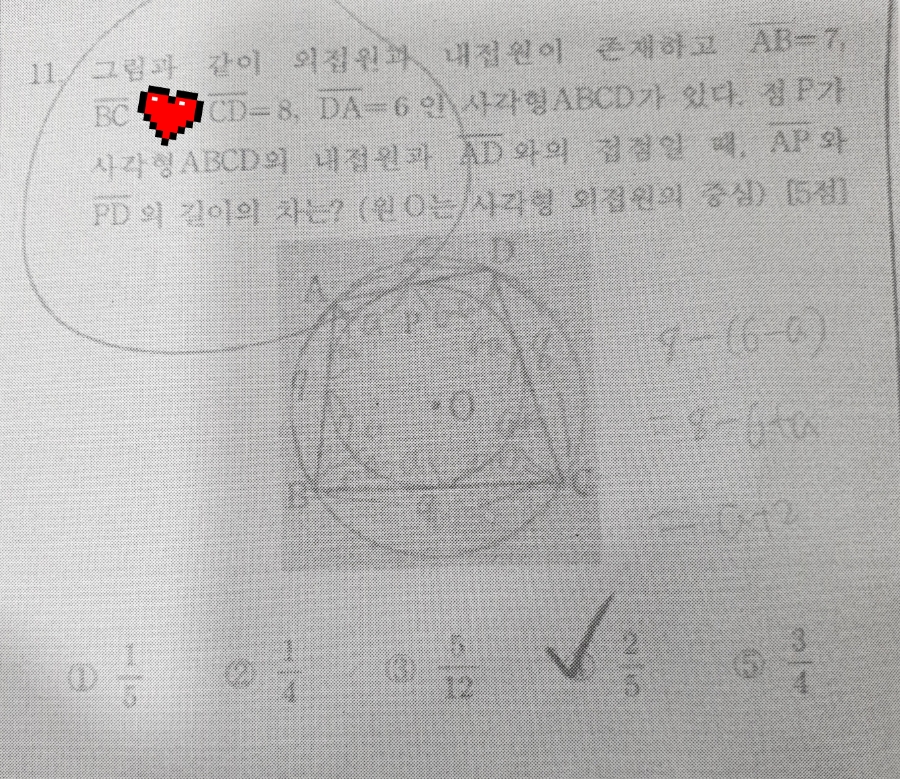 11. 그림과 같이 외접원과 내접원이 존재하고 AB=7,
BC CD=8, DA=6 인 사각형ABCD가 있다. 점 P가
사각형ABCD의 내접원과 AD와의 접점일 때, AP와
PD의 길이의 차는? (원 O는 사각형 외접원의 중심) [5점]
D
A
P
O
B C
8-(6-a)
=8-6+a
=a+2
① 1/5 ② 1/4 ③ 5/12 2/5 ⑤ 3/4